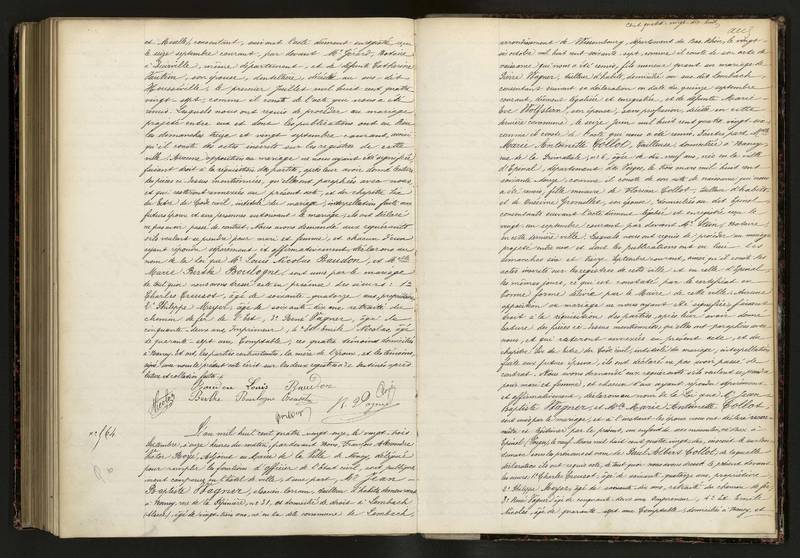 et Moselle), consentant, suivant l'acte dûment enregistré
le seize septembre courant, par devant Me Gérard, Notaire
à même département, et de défunte Catherine
son épouse, dentellière, décédée au dit
le premier Juillet mil huit cent quatre
vingt-sept, comme il conste de l'acte qui nous a été
remis. Lesquels nous ont requis de procéder au mariage
projeté entre eux et dont les publications ont eu lieu
les dimanches treize et vingt septembre courant, ainsi
qu'il conste des actes inscrits sur les registres de cette
ville. Aucune opposition au mariage ne nous ayant été signifiée,
faisant droit à la réquisition des parties, après leur avoir donné lecture
des pièces ci-dessus mentionnées, qu'elles ont paraphées avec nous
et qui resteront annexées au présent acte, et du chapitre six
du Code de Code civil, intitulé du mariage, interpellation faite aux
futurs époux et aux personnes autorisant le mariage, ils ont déclaré
ne pas avoir passé de contrat. Nous avons demandé aux requérants
s'ils veulent se prendre pour mari et femme, et chacun d'eux
ayant répondu séparément et affirmativement, déclarons au
nom de la loi que Mr Louis Nicolas Baudon, et Mlle
Marie Berthe Boulogne, sont unis par le mariage
de tout quoi nous avons dressé acte en présence des sieurs : 1°
Charles Creusot, âgé de soixante quatorze ans, propriétaire
2° Philippe Mayer, âgé de soixante-dix ans, retraité du
chemin de fer de l'Est, 3° René Wagner, âgé de
cinquante-deux ans, Imprimeur, 4° Emile Nicolas, âgé
de quarante-sept ans, Comptable, ces quatre témoins domiciliés
à Nancy. Et ont, les parties contractantes, la mère de l'époux, et les témoins,
signé avec nous le présent acte écrit sur les deux registres
lecture et collation faite.
Baudon Louis Baudon
Berthe Boulogne Creusot
Nicolas
R. Wagner
n° 764
L'an mil huit cent quatre vingt onze, le vingt-trois
Septembre, à onze heures du matin, par devant Nous, François Alexandre
Victor Boyé, Adjoint au Maire de la Ville de Nancy, délégué
pour remplir les fonctions d'Officier de l'état civil, sont publiquement
comparus en l'hôtel de ville, d'une part, Mr Jean-
Baptiste Wagner, tailleur d'habits, demeurant
à Nancy, rue de la n° 31, et domicilié de droit à Lembach
(Alsace), âgé de vingt-trois ans, né en la dite commune de Lembach,
Cent quatre-vingt-dix-huit
arrondissement de Wissembourg, département du Bas-Rhin, le vingt-
octobre mil huit cent soixante sept, comme il conste de son acte de
naissance qui nous a été remis, fils mineur quant au mariage de
Pierre Wagner, tailleur d'habits, domicilié au dit Lembach,
consentant suivant sa déclaration en date du quinze septembre
courant, dûment légalisée et enregistrée, et de défunte Marie
Eve Wolfstern, son épouse, sans profession, décédée en cette
dernière commune, le seize juin mil huit cent quatre vingt
comme il conste de l'acte qui nous a été remis. D'autre part, Mlle
Marie Antoinette Collot, Tailleuse, domiciliée à Nancy,
rue de la Primatiale, n° 6, âgée de dix-neuf ans, née en la ville
d'Epinal, département des Vosges, le trois mars mil huit cent
soixante douze comme il conste de son acte de naissance qui nous
a été remis, fille mineure de Florian Collot, tailleur d'habits
et de son épouse, domiciliés au dit Epinal,
consentants suivant l'acte dûment légalisé et enregistré reçu le
vingt-un septembre courant par devant Me Stein, Notaire
en cette dernière ville. Lesquels nous ont requis de procéder au mariage
projeté entre eux et dont les publications ont eu lieu les
dimanches six et treize Septembre courant, ainsi qu'il conste des
actes inscrits sur les registres de cette ville et en celle d'Epinal,
les mêmes jours, ce qui est constaté par le certificat en
bonne forme délivré par le Maire de cette ville. Aucune
opposition au mariage ne nous ayant été signifiée, faisant
droit à la réquisition des parties, après leur avoir donné
lecture des pièces ci-dessus mentionnées, qu'elles ont paraphées avec
nous, et qui resteront annexées au présent acte, et du
chapitre six du titre du Code civil, intitulé du mariage, interpellation
faite aux futurs époux, ils ont déclaré ne pas avoir passé de
contrat. Nous avons demandé aux requérants s'ils veulent se prendre
pour mari et femme, et chacun d'eux ayant répondu séparément
et affirmativement, déclarons au nom de la loi que Mr Jean
Baptiste Wagner et Mlle Marie Antoinette Collot
sont unis par le mariage, et à l'instant les époux nous ont déclaré reconnaître
et légitimer par le présent, un enfant de sexe masculin, né d'eux à
Epinal (Vosges), le neuf Mars mil huit cent quatre vingt-dix, inscrit
sous les prénoms et nom de Paul Albert Collot, de laquelle
déclaration ils ont requis acte, de tout quoi nous avons dressé le présent devant
les sieurs : 1° Charles Creusot, âgé de soixante quatorze ans, propriétaire,
2° Philippe Mayer, âgé de soixante-dix ans, retraité du chemin de fer,
3° René Wagner, âgé de cinquante-deux ans, Imprimeur, 4° Emile
Nicolas, âgé de quarante-sept ans, Comptable, domiciliés à Nancy, et